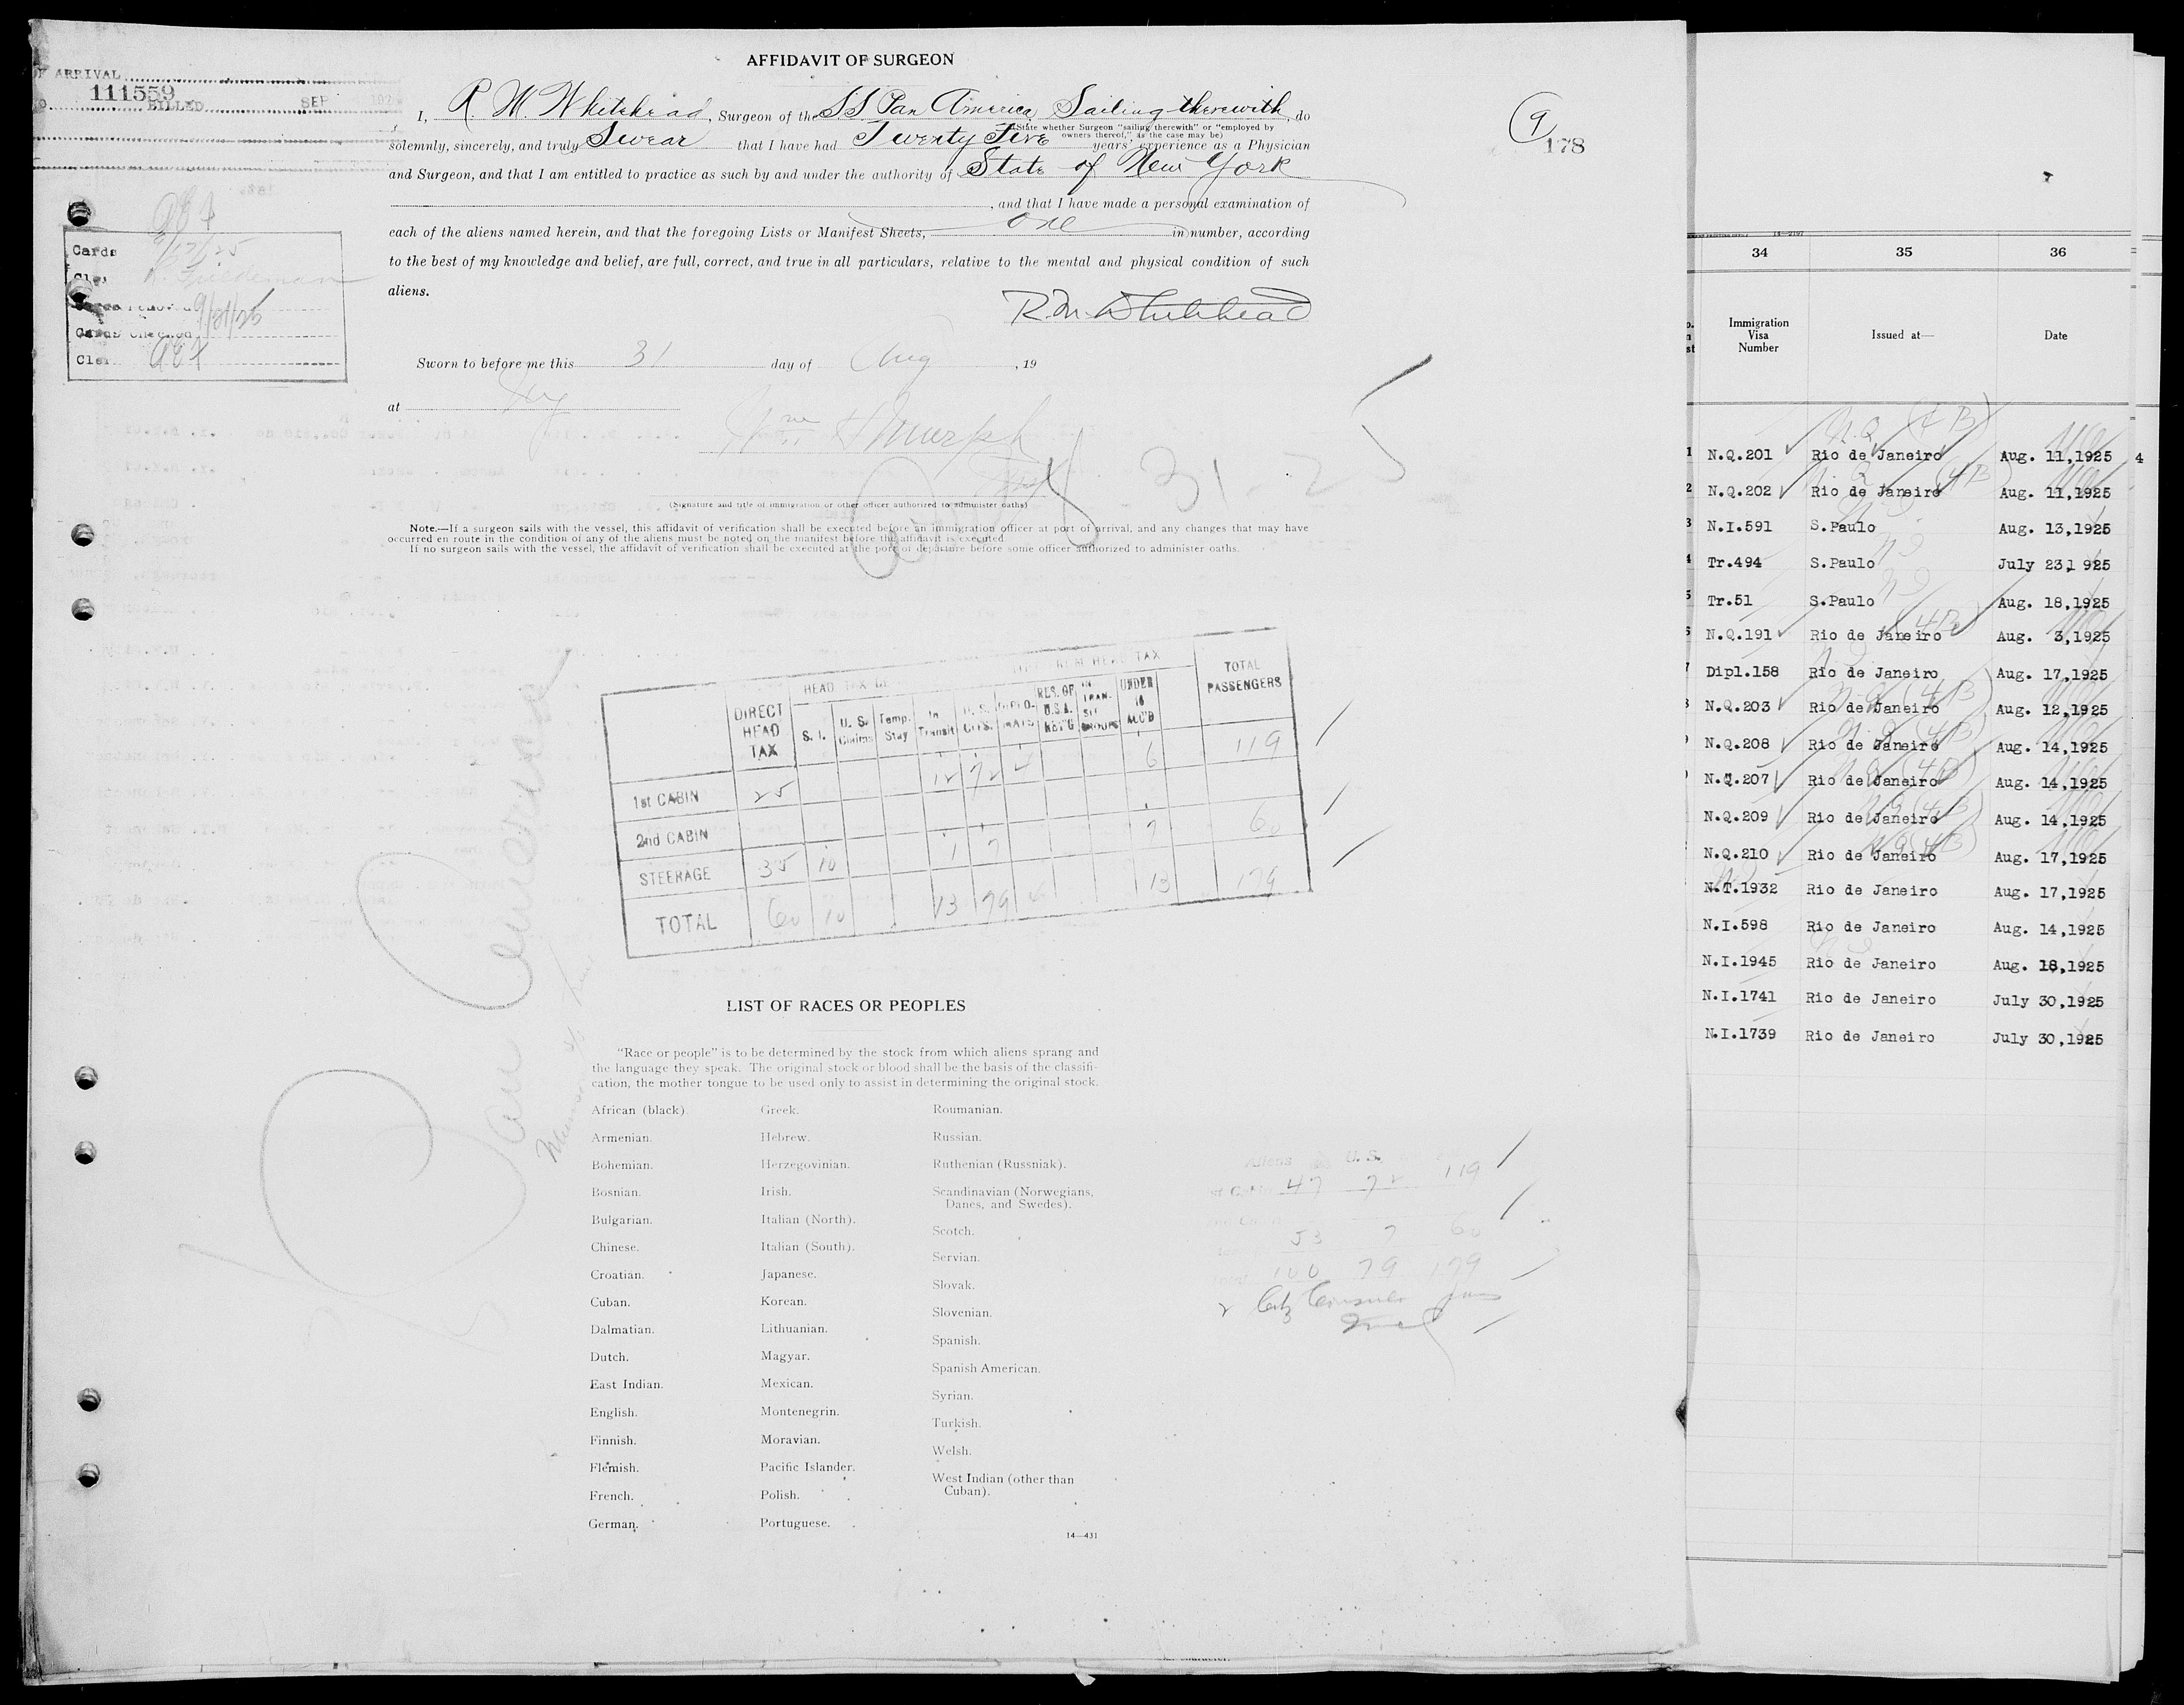 AFFIDAVIT OF SURGEON
OF ARRIVAL
111559
BILLED SEP
I, R. M. Whitehead, Surgeon of the SS Pan America Sailing therewith, do
(State whether Surgeon "sailing therewith" or "employed by
owners thereof," as the case may be)
solemnly, sincerely, and truly Swear that I have had Twenty Five years' experience as a Physician
and Surgeon, and that I am entitled to practice as such by and under the authority of State of New York
, and that I have made a personal examination of
each of the aliens named herein, and that the foregoing Lists or Manifest Sheets, one in number, according
to the best of my knowledge and belief, are full, correct, and true in all particulars, relative to the mental and physical condition of such
aliens.
R. M. Whitehead
9
178
Cards
9/17/25
9/21/25
Cards Checked
Sworn to before me this 31 day of Aug, 19
at NY
Wm H Murph
8 31-25
(Signature and title of immigration or other officer authorized to administer oaths)
Note.—If a surgeon sails with the vessel, this affidavit of verification shall be executed before an immigration officer at port of arrival, and any changes that may have
occurred en route in the condition of any of the aliens must be noted on the manifest before the affidavit is executed.
If no surgeon sails with the vessel, the affidavit of verification shall be executed at the port of departure before some officer authorized to administer oaths.
DIRECT HEAD TAX
HEAD TAX
S. I.
U. S. Claims
Temp. Stay
In Transit
U. S. CITS.
DIPLOMATS
RES. OF U.S.A. RET'G
IN TRANSIT GROUPS
UNDER 16 ACC'D
TOTAL PASSENGERS
1st CABIN 25 12 72 6 119
2nd CABIN
STEERAGE 35 10 1 7 7 60
TOTAL 60 10 13 79 13 179
Pan America
LIST OF RACES OR PEOPLES
"Race or people" is to be determined by the stock from which aliens sprang and
the language they speak. The original stock or blood shall be the basis of the classifi-
cation, the mother tongue to be used only to assist in determining the original stock.
African (black).
Armenian.
Bohemian.
Bosnian.
Bulgarian.
Chinese.
Croatian.
Cuban.
Dalmatian.
Dutch.
East Indian.
English.
Finnish.
Flemish.
French.
German.
Greek.
Hebrew.
Herzegovinian.
Irish.
Italian (North).
Italian (South).
Japanese.
Korean.
Lithuanian.
Magyar.
Mexican.
Montenegrin.
Moravian.
Pacific Islander.
Polish.
Portuguese.
Roumanian.
Russian.
Ruthenian (Russniak).
Scandinavian (Norwegians,
Danes, and Swedes).
Scotch.
Servian.
Slovak.
Slovenian.
Spanish.
Spanish American.
Syrian.
Turkish.
Welsh.
West Indian (other than
Cuban).
14—431
Aliens U. S.
47 72 119
53 7 60
100 79 179
34 35 36
Immigration Visa Number
Issued at—
Date
N.Q.201 Rio de Janeiro Aug. 11,1925 4
N.Q.202 Rio de Janeiro Aug. 11,1925
N.I.591 S.Paulo Aug. 13,1925
Tr.494 S.Paulo July 23,1 925
Tr.51 S.Paulo Aug. 18,1925
N.Q.191 Rio de Janeiro Aug. 3,1925
Dipl.158 Rio de Janeiro Aug. 17,1925
N.Q.203 Rio de Janeiro Aug. 12,1925
N.Q.208 Rio de Janeiro Aug. 14,1925
N.Q.207 Rio de Janeiro Aug. 14,1925
N.Q.209 Rio de Janeiro Aug. 14,1925
N.Q.210 Rio de Janeiro Aug. 17,1925
N.T.1932 Rio de Janeiro Aug. 17,1925
N.I.598 Rio de Janeiro Aug. 14,1925
N.I.1945 Rio de Janeiro Aug. 18,1925
N.I.1741 Rio de Janeiro July 30,1925
N.I.1739 Rio de Janeiro July 30,1925